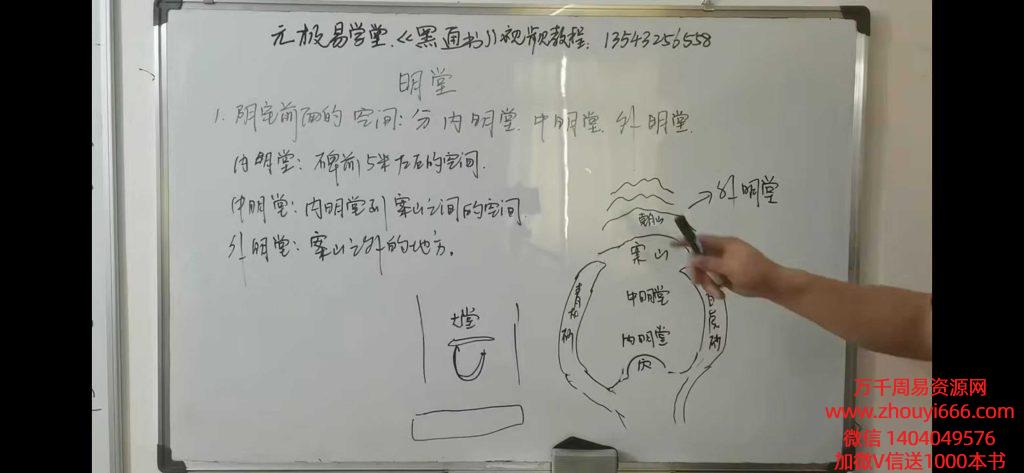 元极易学堂.《黑通书》视频教程. 13543256558
明堂
1. 阴宅前面的空间: 分内明堂. 中明堂. 外明堂.
内明堂: 碑前15米左右的空间.
中明堂: 内明堂到案山之间的空间.
外明堂: 案山之外的地方.
外明堂
朝山
案山
中明堂
内明堂
穴
青龙砂
白虎砂
大堂
万千周易资源网
www.zhouyi666.com
微信 1404049576
加微V信送1000本书